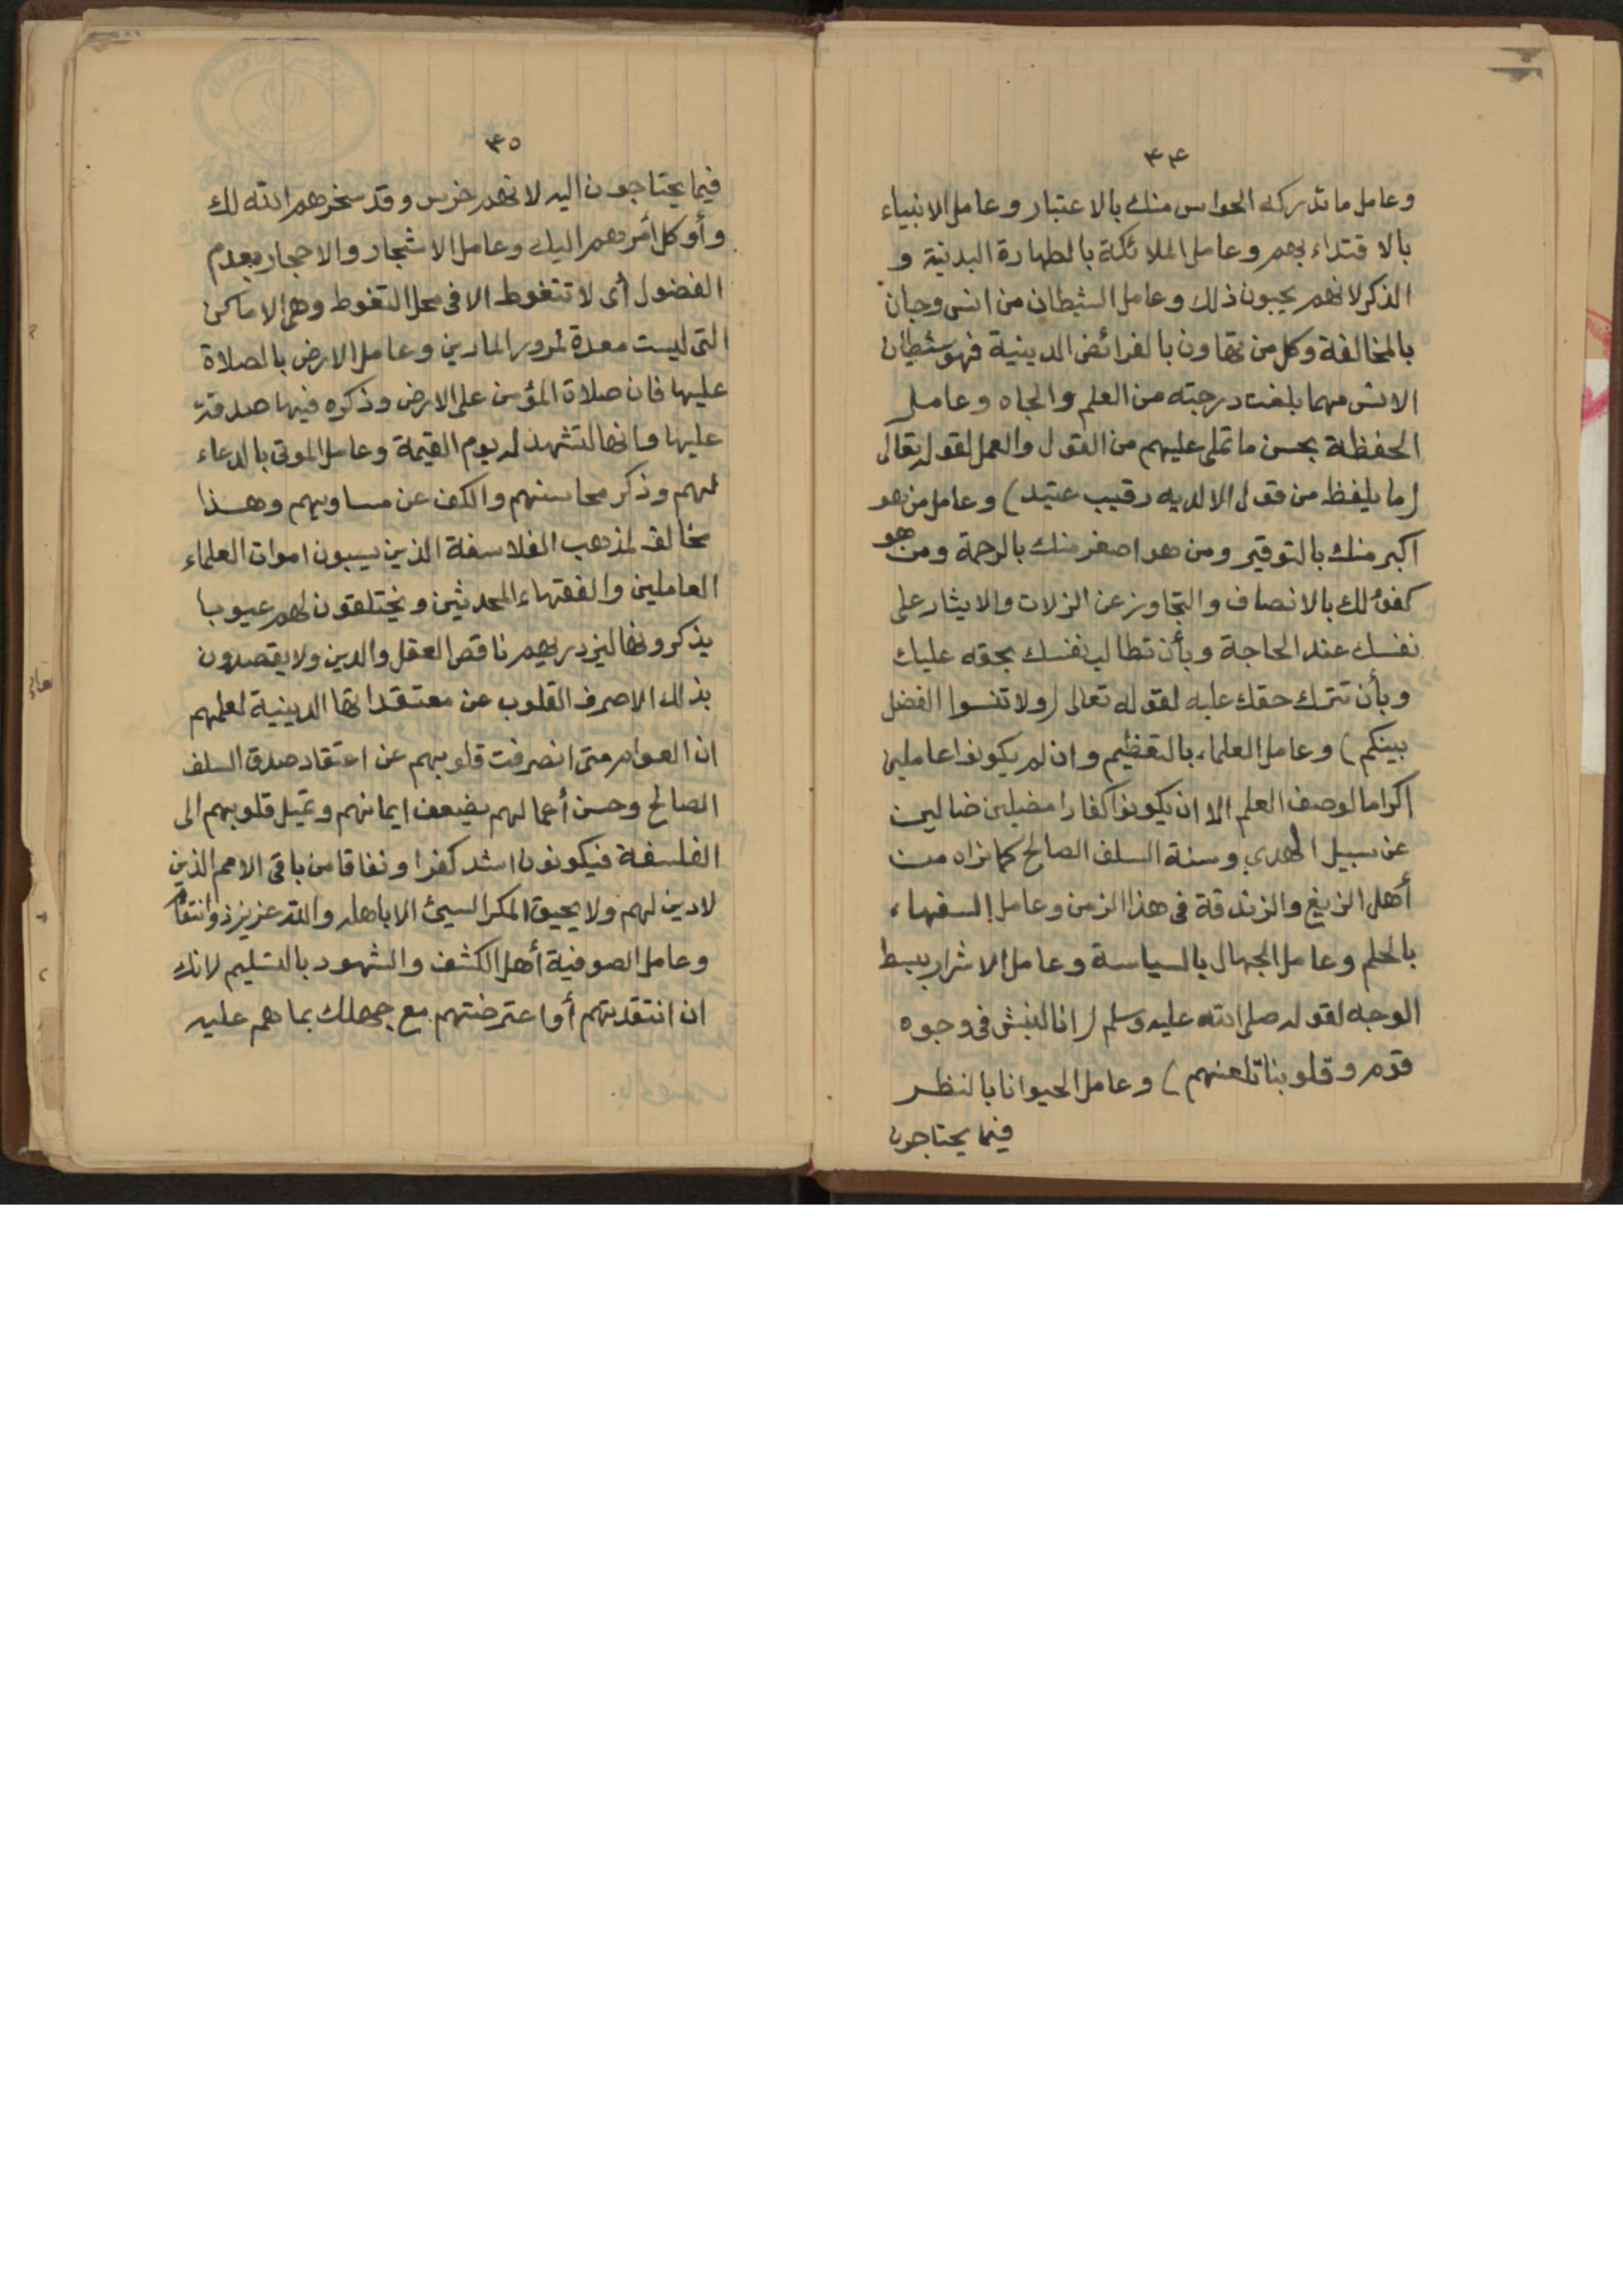 ٣٤
وعامل ما تدركه الحواس منك بالاعتبار وعامل الانبياء
بالاقتداء بهم وعامل الملائكة بالطهارة البدنية و
الذكر لانهم يحبون ذلك وعامل الشيطان من انس وجان
بالمخالفة وكل من تهاون بالفرائض الدينية فهو شيطان
الانس مهما بلغت درجته من العلم والجاه وعامل
الحفظة بحسن ما تملى عليهم من القول والعمل لقوله تعالى
(ما يلفظ من قول الا لديه رقيب عتيد) وعامل من هو
اكبر منك بالتوقير ومن هو اصغر منك بالرحمة ومن هو
كفؤ لك بالانصاف والتجاوز عن الزلات والايثار على
نفسك عند الحاجة وبأن تطالب نفسك بحقه عليك
وبأن تترك حقك عليه لقوله تعالى (ولا تنسوا الفضل
بينكم) وعامل العلماء بالتعظيم وان لم يكونوا عاملين
اكراما لوصف العلم الا ان يكونوا كفارا مضلين ضالين
عن سبيل الهدي وسنة السلف الصالح كما نراه من
أهل الزيغ والزندقة فى هذا الزمن وعامل السفهاء
بالحلم وعامل الجهال بالسياسة وعامل الاشرار ببسط
الوجه لقوله صلى الله عليه وسلم (انا لنبش فى وجوه
قوم وقلوبنا تلعنهم) وعامل الحيوانا بالنظر
فيما يحتاجون
٣٥
فيما يحتاجون اليه لانهم خرس وقد سخرهم الله لك
وأوكل أمرهم اليك وعامل الاشجار والاحجار بعدم
الفضول أى لا تتغوط الا فى محل التغوط وهى الاماكن
التى ليست معدة لمرور المارين وعامل الارض بالصلاة
عليها فان صلاة المؤمن على الارض وذكره فيها صدقة
عليها وانها لتشهد له يوم القيمة وعامل الموتى بالدعاء
لهم وذكر محاسنهم والكف عن مساويهم وهذا
مخالف لمذهب الفلاسفة الذين يسبون اموات العلماء
العاملين والفقهاء المحدثين ويختلقون لهم عيوبا
يذكرونها ليزدريهم ناقص العقل والدين ولا يقصدون
بذلك الا صرف القلوب عن معتقداتها الدينية لعلمهم
ان العوام متى انصرفت قلوبهم عن اعتقاد صدق السلف
الصالح وحسن أعمالهم يضعف ايمانهم وتميل قلوبهم الى
الفلسفة فيكونون اشد كفرا ونفاقا من باقى الامم الذين
لا دين لهم ولا يحيق المكر السيئ الا باهله والله عزيز ذو انتقام
وعامل الصوفية أهل الكشف والشهود بالتسليم لانك
ان انتقدتهم أو اعترضتهم مع جهلك بما هم عليه